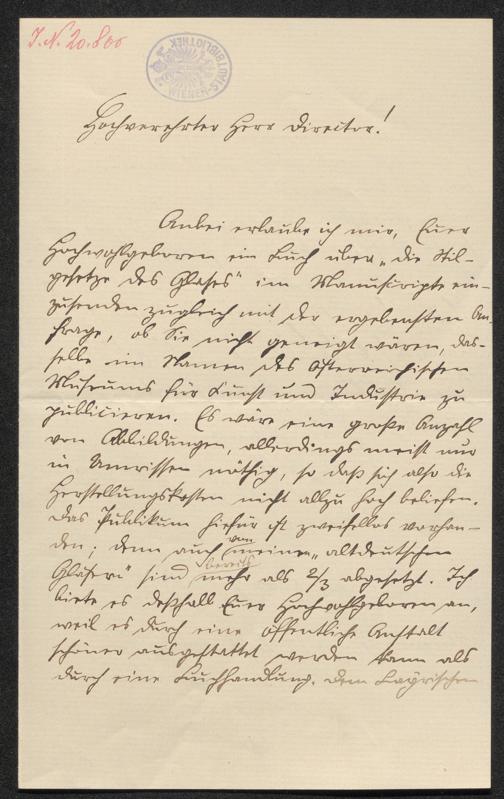 J. N. 20.800
WIENER STADTBIBLIOTHEK
Hochverehrter Herr Director!
Anbei erlaube ich mir, Euer
Hochwohlgeboren ein Buch über „die Stil-
gesetze des Glases" im Manuscripte ein-
zusenden zugleich mit der ergebensten An-
frage, ob Sie nicht geneigt wären, das-
selbe im Namen des österreichischen
Museums für Kunst und Industrie zu
publicieren. Es wäre eine große Anzahl
von Abbildungen, allerdings meist nur
in Umrissen nöthig, so daß sich also die
Herstellungskosten nicht allzu hoch beliefen.
Das Publikum hiefür ist zweifellos vorhan-
den; denn auch von meinen „altdeutschen
Gläsern" sind bereits mehr als 2/3 abgesetzt. Ich
biete es deßhalb Euer Hochwohlgeboren an,
weil es durch eine öffentliche Anstalt
schöner ausgestattet werden kann als
durch eine Buchhandlung. Dem Bayrischen